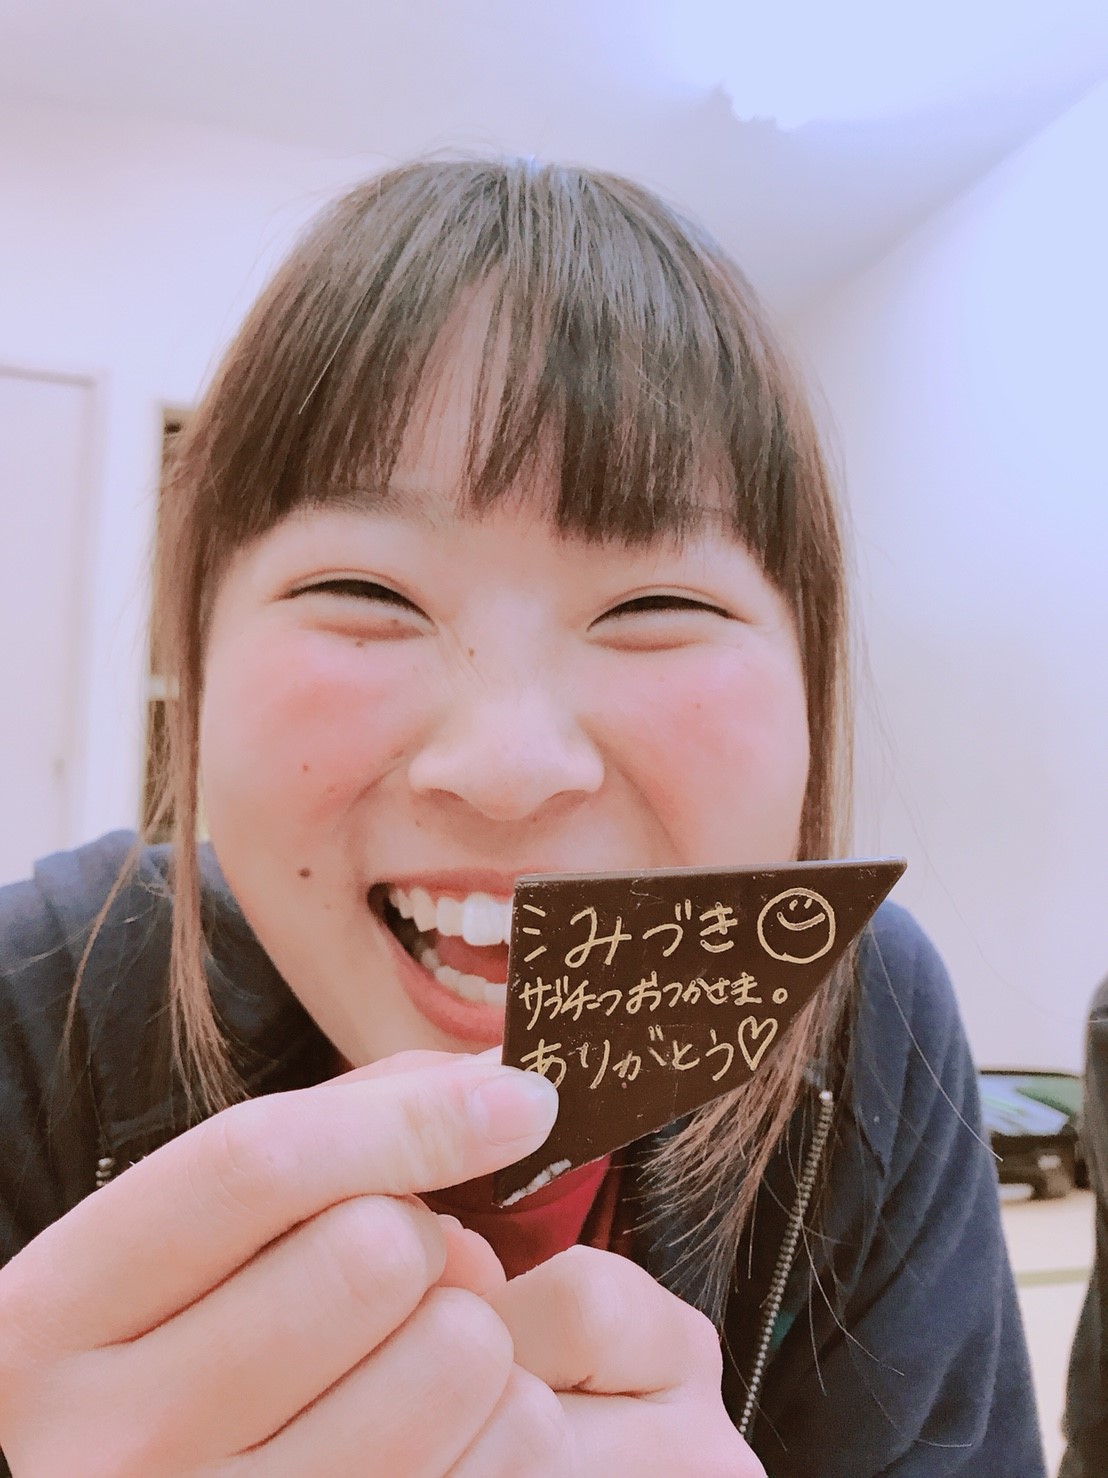 ミみづき
サブチーフおつかせま。
ありがとう♡